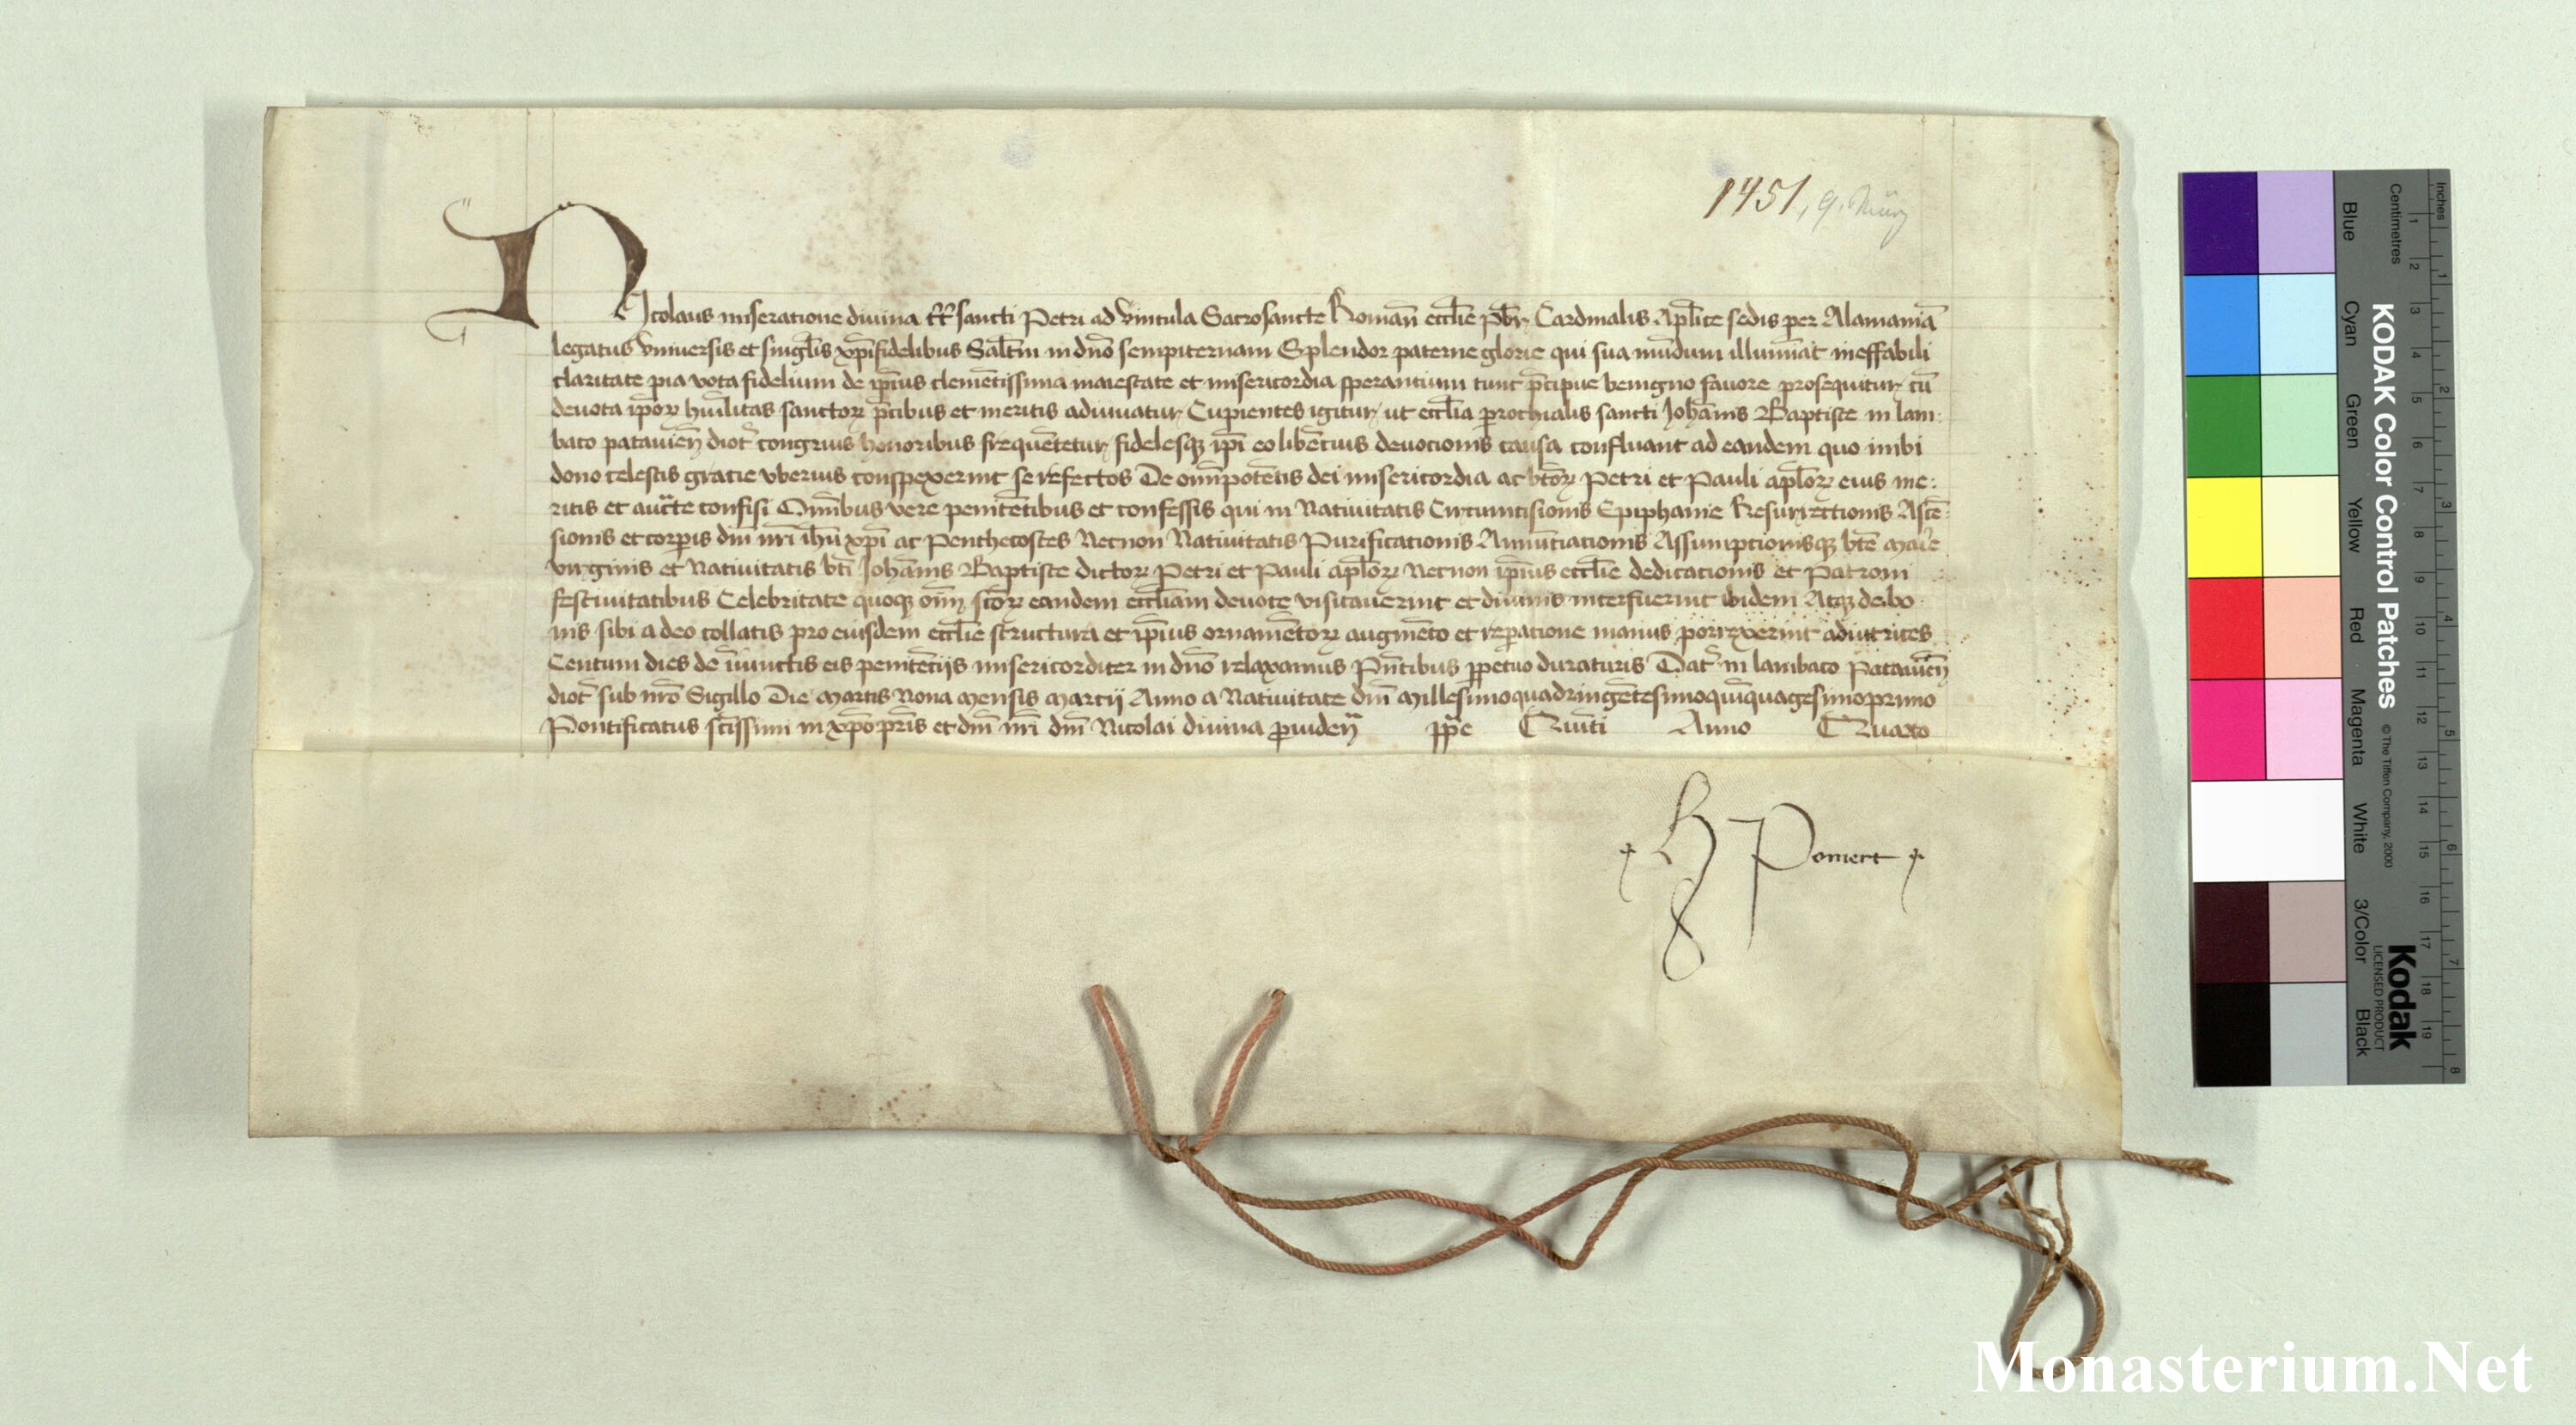 1451, 9. März
Nicolaus miseratione divina tt̃ sancti Petri ad Vincula Sacrosancte Romañ eccl̃ie p̃br̃ Cardinalis Ap̃lice sedis per Alamaniã
legatus Vniuersis et sing̃lis xp̃ifidelibus Sal̃tm in dño sempiternam Splendor paterne glorie qui sua mũdum illumĩat ineffabili
claritate pia vota fidelium de ip̃ius clemẽtissima maiestate et misericordia sperantium tunc p̃cipue benigno fauore prosequitur cũ
deuota ip̃oꝝ hũilitas sanctoꝝ p̃cibus et meritis adiuuatur Cupientes igitur ut eccl̃ia ꝑrochialis sancti Johãnis Baptiste in lam:
baco patauieñ dioc̃ congruis honoribus frequẽtetur fidelesqꝫ ip̃i eo libẽcius deuocionis causa confluant ad eandem quo inibi
dono celestis gratie vberius conspexerint se refectos De om̃ipotẽtis dei misericordia ac bt̃oꝝ Petri et Pauli ap̃loꝝ eius me:
ritis et auc̃te confisi Om̃ibus vere penitẽtibus et confessis qui in Natiuitatis Circumcisionis Epiphanie Resurrectionis Ascẽ:
sionis et corꝑis dñi nr̃i ih̃u xp̃i ac Penthecostes Necnon Natiuitatis Purificationis Annũciationis Assumptionisqꝫ bt̃e Marie
virginis et Natiuitatis bt̃i Johãnis Baptiste dictoꝝ Petri et Pauli ap̃loꝝ Necnon ip̃ius eccl̃ie dedicationis et Patroni
festiuitatibus Celebritate quoqꝫ om̃ sc̃oꝝ eandem eccl̃iam deuote visitauerint et diuinis interfuerint ibidem Atqꝫ de bo
nis sibi a deo collatis pro eiusdem eccl̃ie structura et ip̃ius ornamẽtoꝝ augmẽto et reꝑatione manus porrexerint adiutrices
Centum dies de iniunctis eis penitẽtijs misericorditer in dño relaxamus P̃ntibus ꝑpetuo duraturis Dat̃ in lambaco Patauieñ
dioc̃ sub nr̃o Sigillo Die Martis Nona Mensis Marcij Anno a Natiuitate dñi Millesimoquadringẽtesimoquĩquagesimoprimo
Pontificatus sc̃issimi in xp̃o pr̃is et dñi nr̃i dñi Nicolai diuina ꝓuideñ pp̃e Quĩti Anno Quarto
H Pomert
Monasterium.Net
KODAK Color Control Patches © The Tiffen Company, 2000
Kodak
LICENSED PRODUCT
Blue Cyan Green Yellow Red Magenta White 3/Color Black
Centimetres 1 2 3 4 5 6 7 8 9 10 11 12 13 14 15 16 17 18 19
Inches 1 2 3 4 5 6 7 8